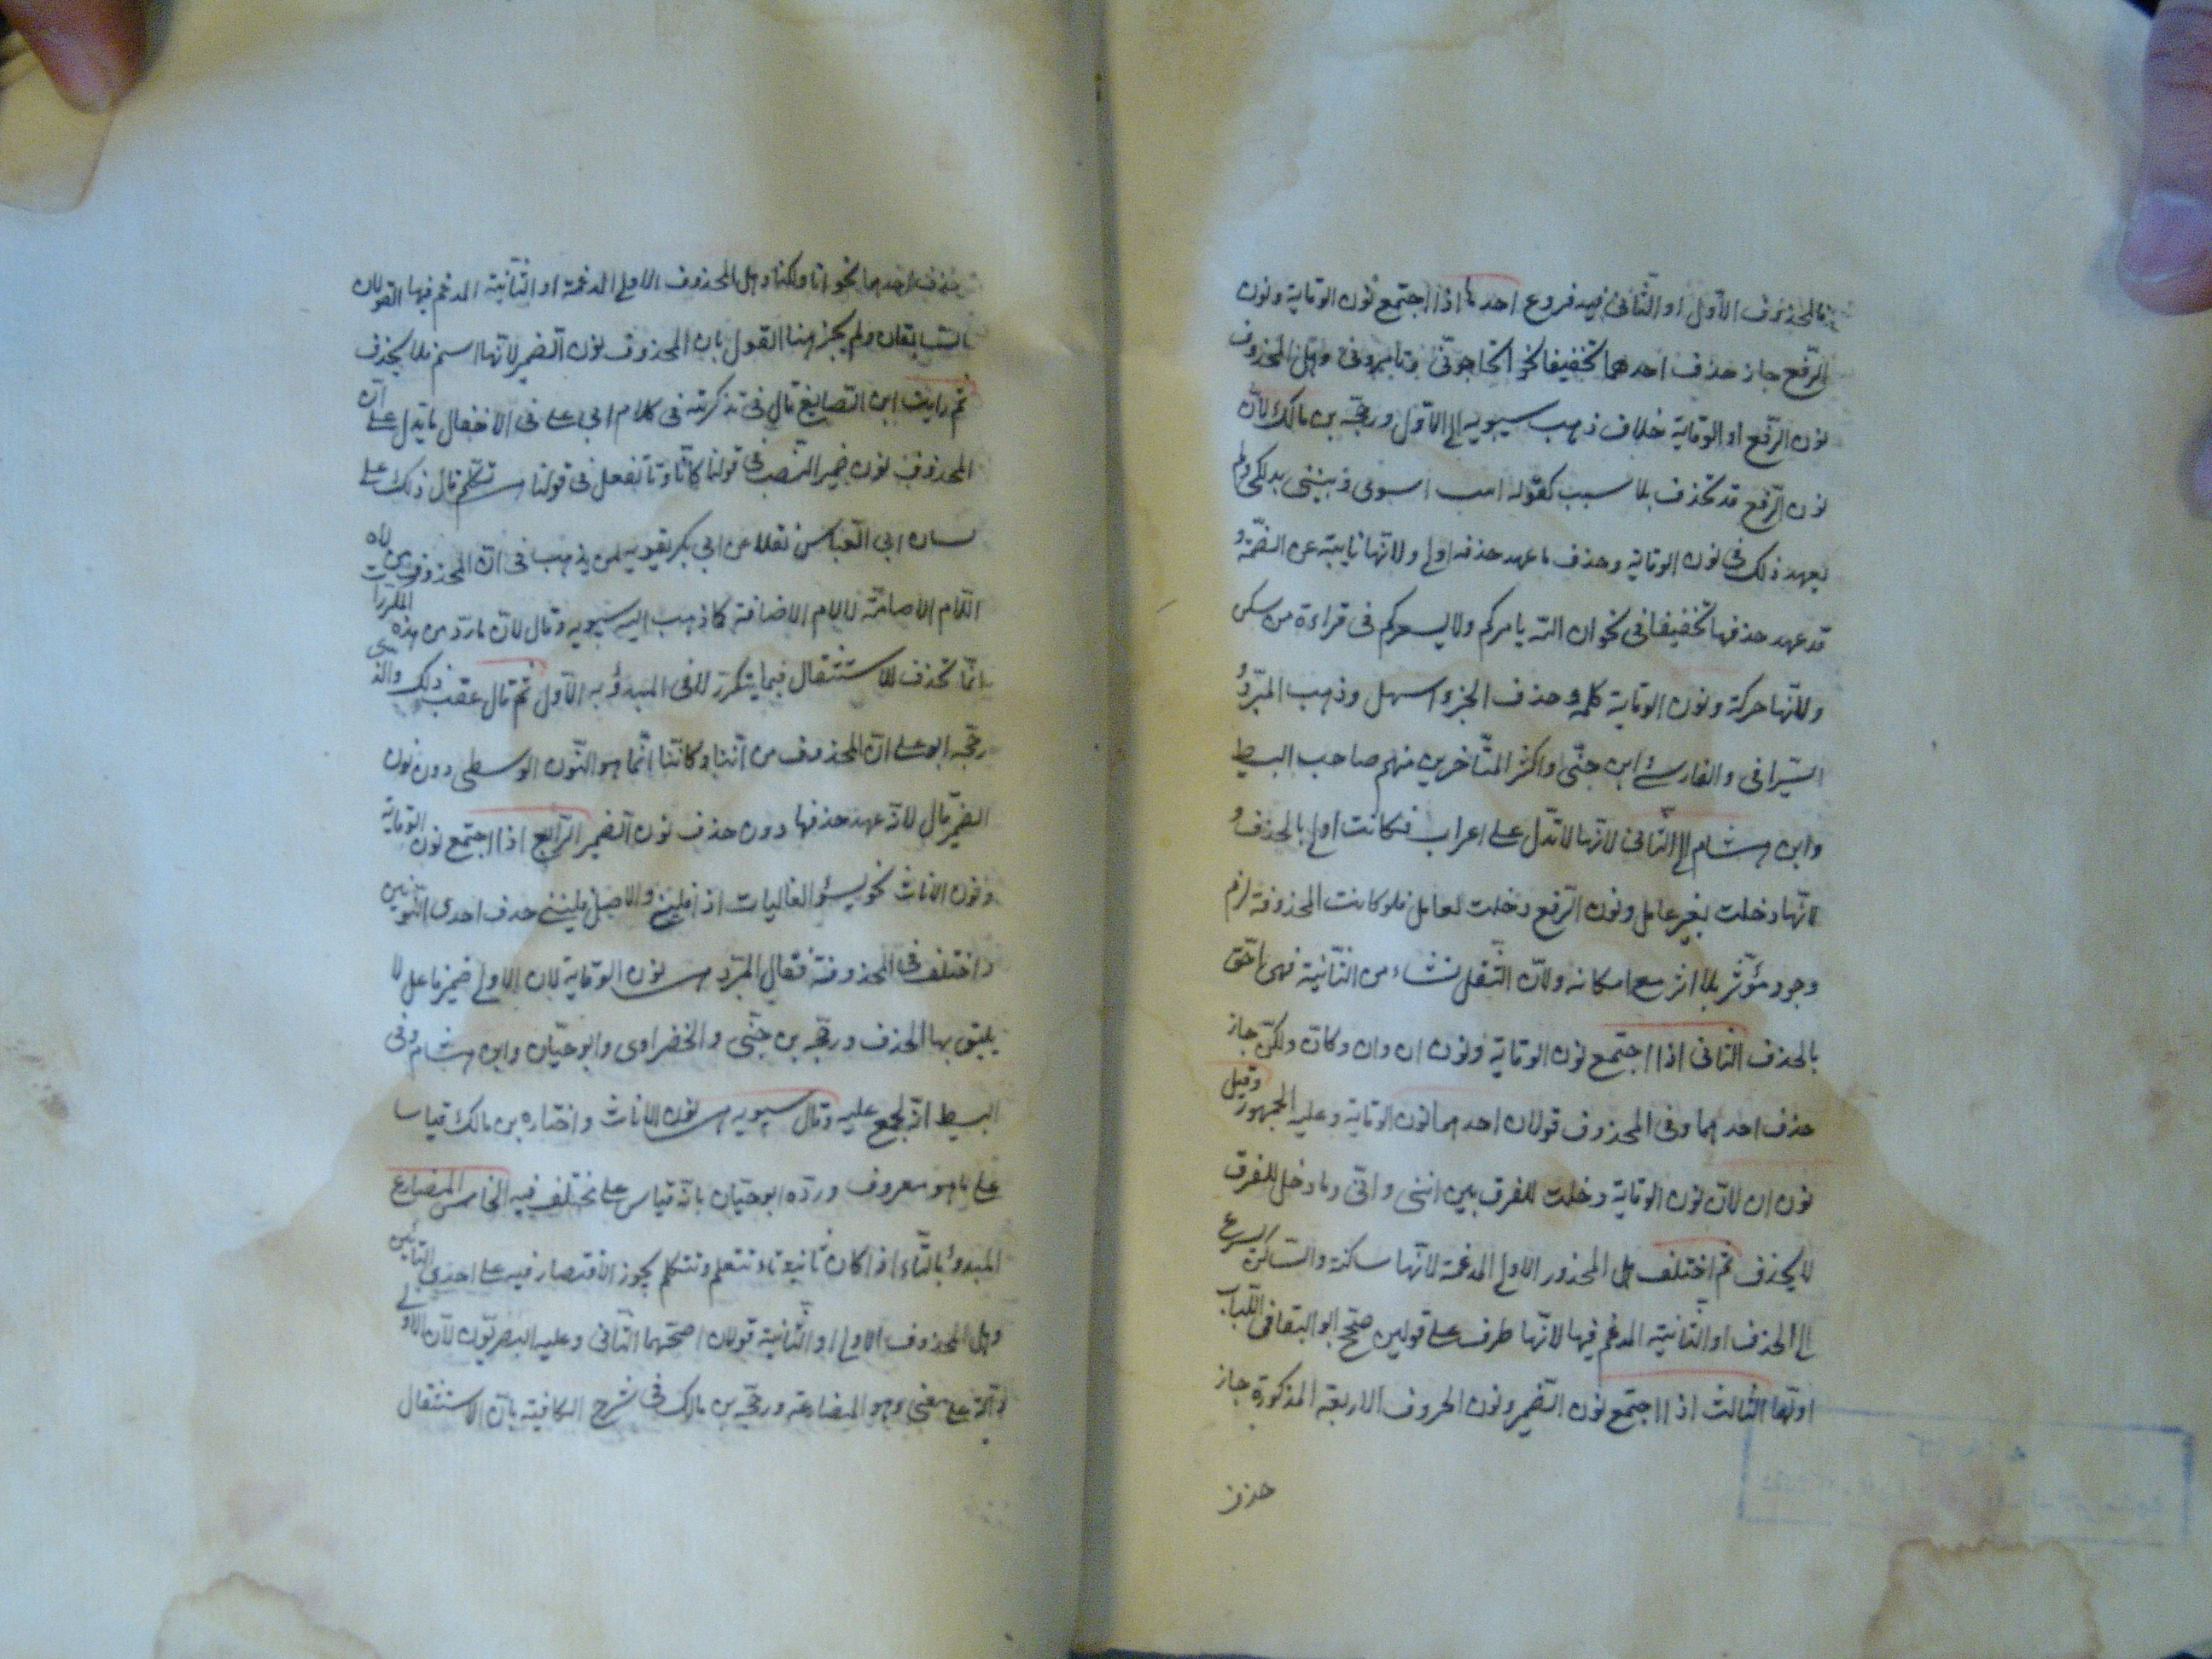 فالمحذوف الأول او الثانى فيه فروع احدها اذا اجتمع نون الوقاية ونون
الرّفع جاز حذف احدهما تخفيفا نحو اتحاجونّى وتامرونى وهل المحذوف
نون الرّفع او الوقاية خلاف ذهب سيبويه الى الأول ورجّحه بن مالك لانّ
نون الرّفع قد تحذف بلا سبب كقوله ابيت اسرى وتبيتى تدلكى ولم
يعهد ذلك فى نون الوقاية وحذف ما عهد حذفه اولى ولانّها نايبة عن الضمّة و
قد عهد حذفها تخفيفا فى نحو ان الله يامركم ولا يشعركم فى قراءة من سكن
ولانّها حركة ونون الوقاية كلمة وحذف الجزء اسهل وذهب المبرّد و
السّيرافى والفارسى وابن جنّى واكثر المتأخرين منهم صاحب البسيط
وابن هشام الى الثّانى لانّها لا تدلّ على اعراب فكانت اولى بالحذف و
لانّها دخلت بغير عامل ونون الرّفع دخلت لعامل فلو كانت المحذوفة لزم
وجود مؤثّر بلا اثر مع امكانه ولانّ الثّقل نشاء من الثّانية فهى احقّ
بالحذف الثانى اذا اجتمع نون الوقاية ونون ان وان وكانّ ولكنّ جاز
حذف احدهما وفى المحذوف قولان احدهما نون الوقاية وعليه الجمهور وقيل
نون ان لانّ نون الوقاية دخلت للفرق بين اننى وانّى وما دخل للفرق
لا يحذف ثم اختلف هل المحذور الاولى المدغمة لانّها ساكنة والسّاكن يسرع
الى الحذف او الثّانية المدغم فيها لانّها طرف على قولين صحّح ابو البقا فى اللّباب
اولّها الثالث اذا اجتمع نون الضّمير ونون الحروف الاربعة المذكورة جاز
حذف
حذف احدهما نحو انا ولكنا وهل المحذوف الاولى المدغمة او الثّانية المدغم فيها القولان
السّابقان ولم يجز هنا القول بان المحذوف نون الضّمير لانّها اسم فلا يحذف
ثم رايت ابن الصّايغ قال فى تذكرته فى كلام ابى على فى الاغفال ما يدل على انّ
المحذوف نون ضمير النّصب فى قولنا كانّا وتا تفعل فى قولنا تكلّم قال ذلك على
لسان ابى العبّاس نقلا عن ابى بكر تقوية لمن يذهب فى انّ المحذوف من لاه
اللّام الاصليّة لا لام الاضافة كما ذهب اليه سيبويه وقال لانّ مارد من هذه المكررات
انّما تحذف للاستثقال فيما يتكرّر لا فى المبدؤ به الأول ثم قال عقب ذلك والذى
رجّحه ابو على انّ المحذوف من انّنا وكانّنا انّما هو النّون الوسطى دون نون
الضّمير قال لانّه عهد حذفها دون حذف نون الضّمير الرّابع اذا اجتمع نون الوقاية
ونون الاناث نحو يسؤ الفاليات اذا فلينى والاصل فلينى حذف احدى النّونين
واختلف فى المحذوفة فقال المبرّد هى نون الوقاية لان الاولى ضمير فاعل لا
يليق بها الحذف ورجّحه بن جنّى والخضراوى وابو حيّان وابن هشام وفى
البسيط انّه مجمع عليه وقال سيبويه هى نون الاناث واختاره بن مالك قياسا
على ما هو معروف وردّه ابو حيّان بانّه قياس على مختلف فيه الخامس المضارع
المبدؤ بالتّاء اذا كان ثانيه تاء نتعلّم ونتكلّم يجوز الاقتصار فيه على احدى التائين
وهل المحذوف الاولى او الثّانية قولان اصحّهما الثّانى وعليه البصريّون لانّ الاولى
دالّة على معنى وهو المضارعة ورجّحه بن مالك فى شرح الكافية بانّ الاستثقال